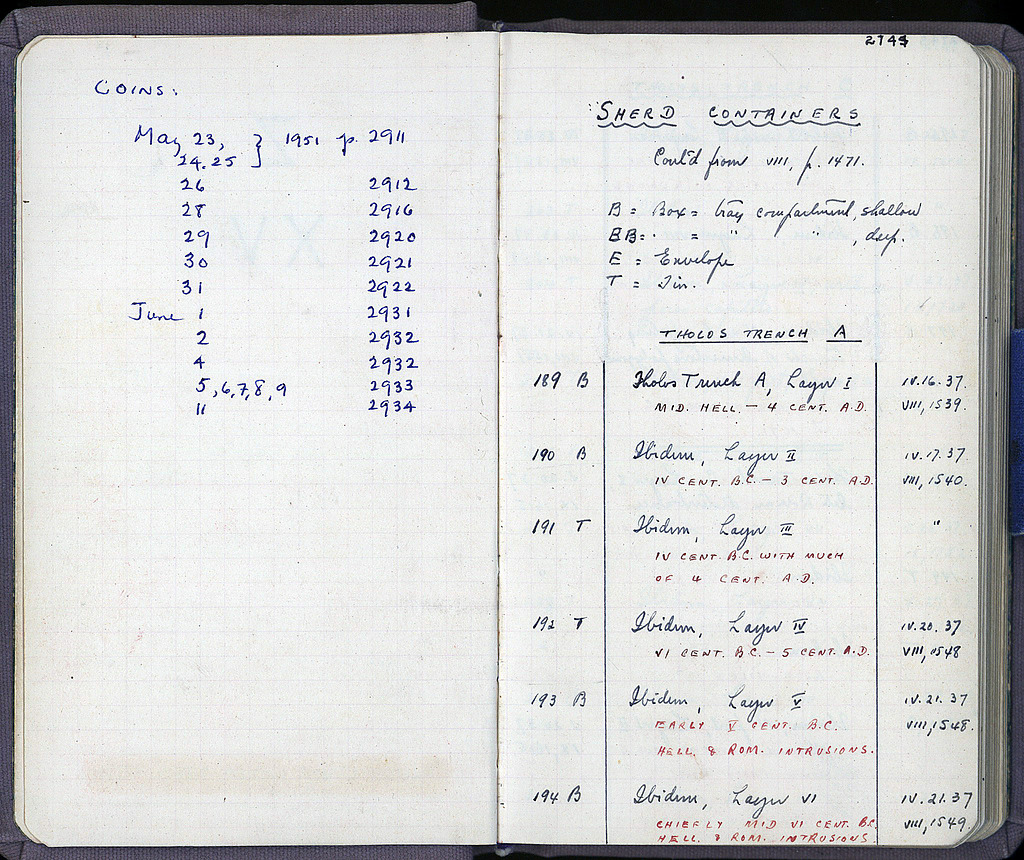 COINS:
May 23, } 1951 p. 2911
24.25
26 2912
28 2916
29 2920
30 2921
31 2922
June 1 2931
2 2932
4 2932
5,6,7,8,9 2933
11 2934
2744
SHERD CONTAINERS
Cont'd from VIII, p. 1471.
B = Box = tray compartment, shallow
BB = " = " " , deep.
E = Envelope
T = Tin.
THOLOS TRENCH A
189 B Tholos Trench A, Layer I IV.16.37.
MID. HELL. – 4 CENT. A.D. VIII, 1539.
190 B Ibidem, Layer II IV.17.37.
IV CENT. B.C. – 3 CENT. A.D. VIII, 1540.
191 T Ibidem, Layer III "
IV CENT. B.C. WITH MUCH
OF 4 CENT. A.D.
192 T Ibidem, Layer IV IV.20.37
VI CENT. B.C. – 5 CENT. A.D. VIII, 1548
193 B Ibidem, Layer V IV.21.37
EARLY V CENT. B.C. VIII, 1548.
HELL. & ROM. INTRUSIONS.
194 B Ibidem, Layer VI IV.21.37
CHIEFLY MID VI CENT. B.C. VIII, 1549.
HELL. & ROM. INTRUSIONS